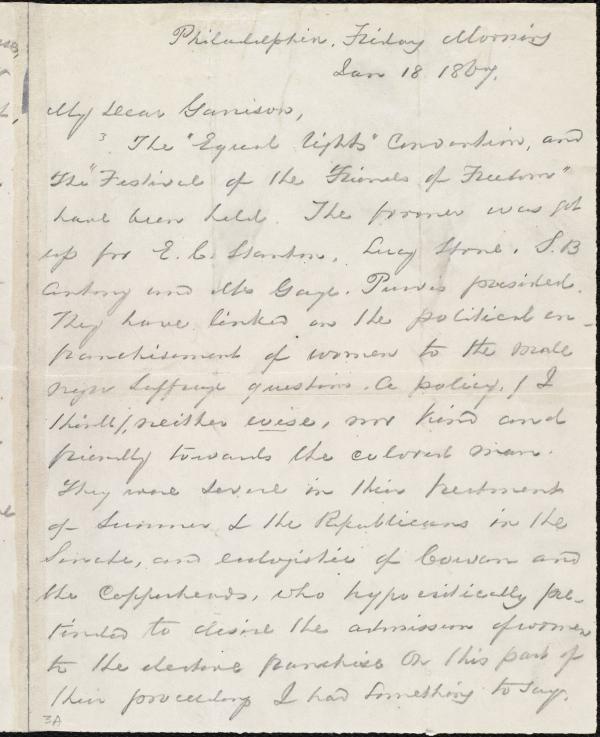 Philadelphia, Friday Morning
Jan 18 1867.
My Dear Garrison,
The "Equal Rights" Convention, and
the "Festival of the Friends of Freedom"
have been held. The former was got
up for E. C. Stanton, Lucy Stone, S. B
Antony and Mr Gage. Purvis presided.
They have linked on the political en-
franchisement of women to the male
negro Suffrage question. A policy, (I
think), neither wise, nor kind and
friendly towards the colored man.
They were severe in their treatment
of Sumner & the Republicans in the
Senate, and eulogistic of Cowan and
the Copperheads, who hypocritically pre-
tended to desire the admission of women
to the elective franchise On this part of
their proceedings I had something to say.
3A